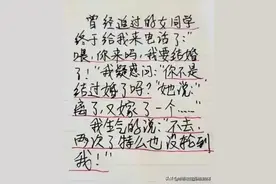 曾经追过的女同学
终于给我来电话了:“
喂,你来吗,我要结婚
了!”我疑惑问:“你不是
结过婚了吗?”她说:“
离了,又嫁了一个……”
我生气的说:“不去,
两次了特么也没轮到
我!”